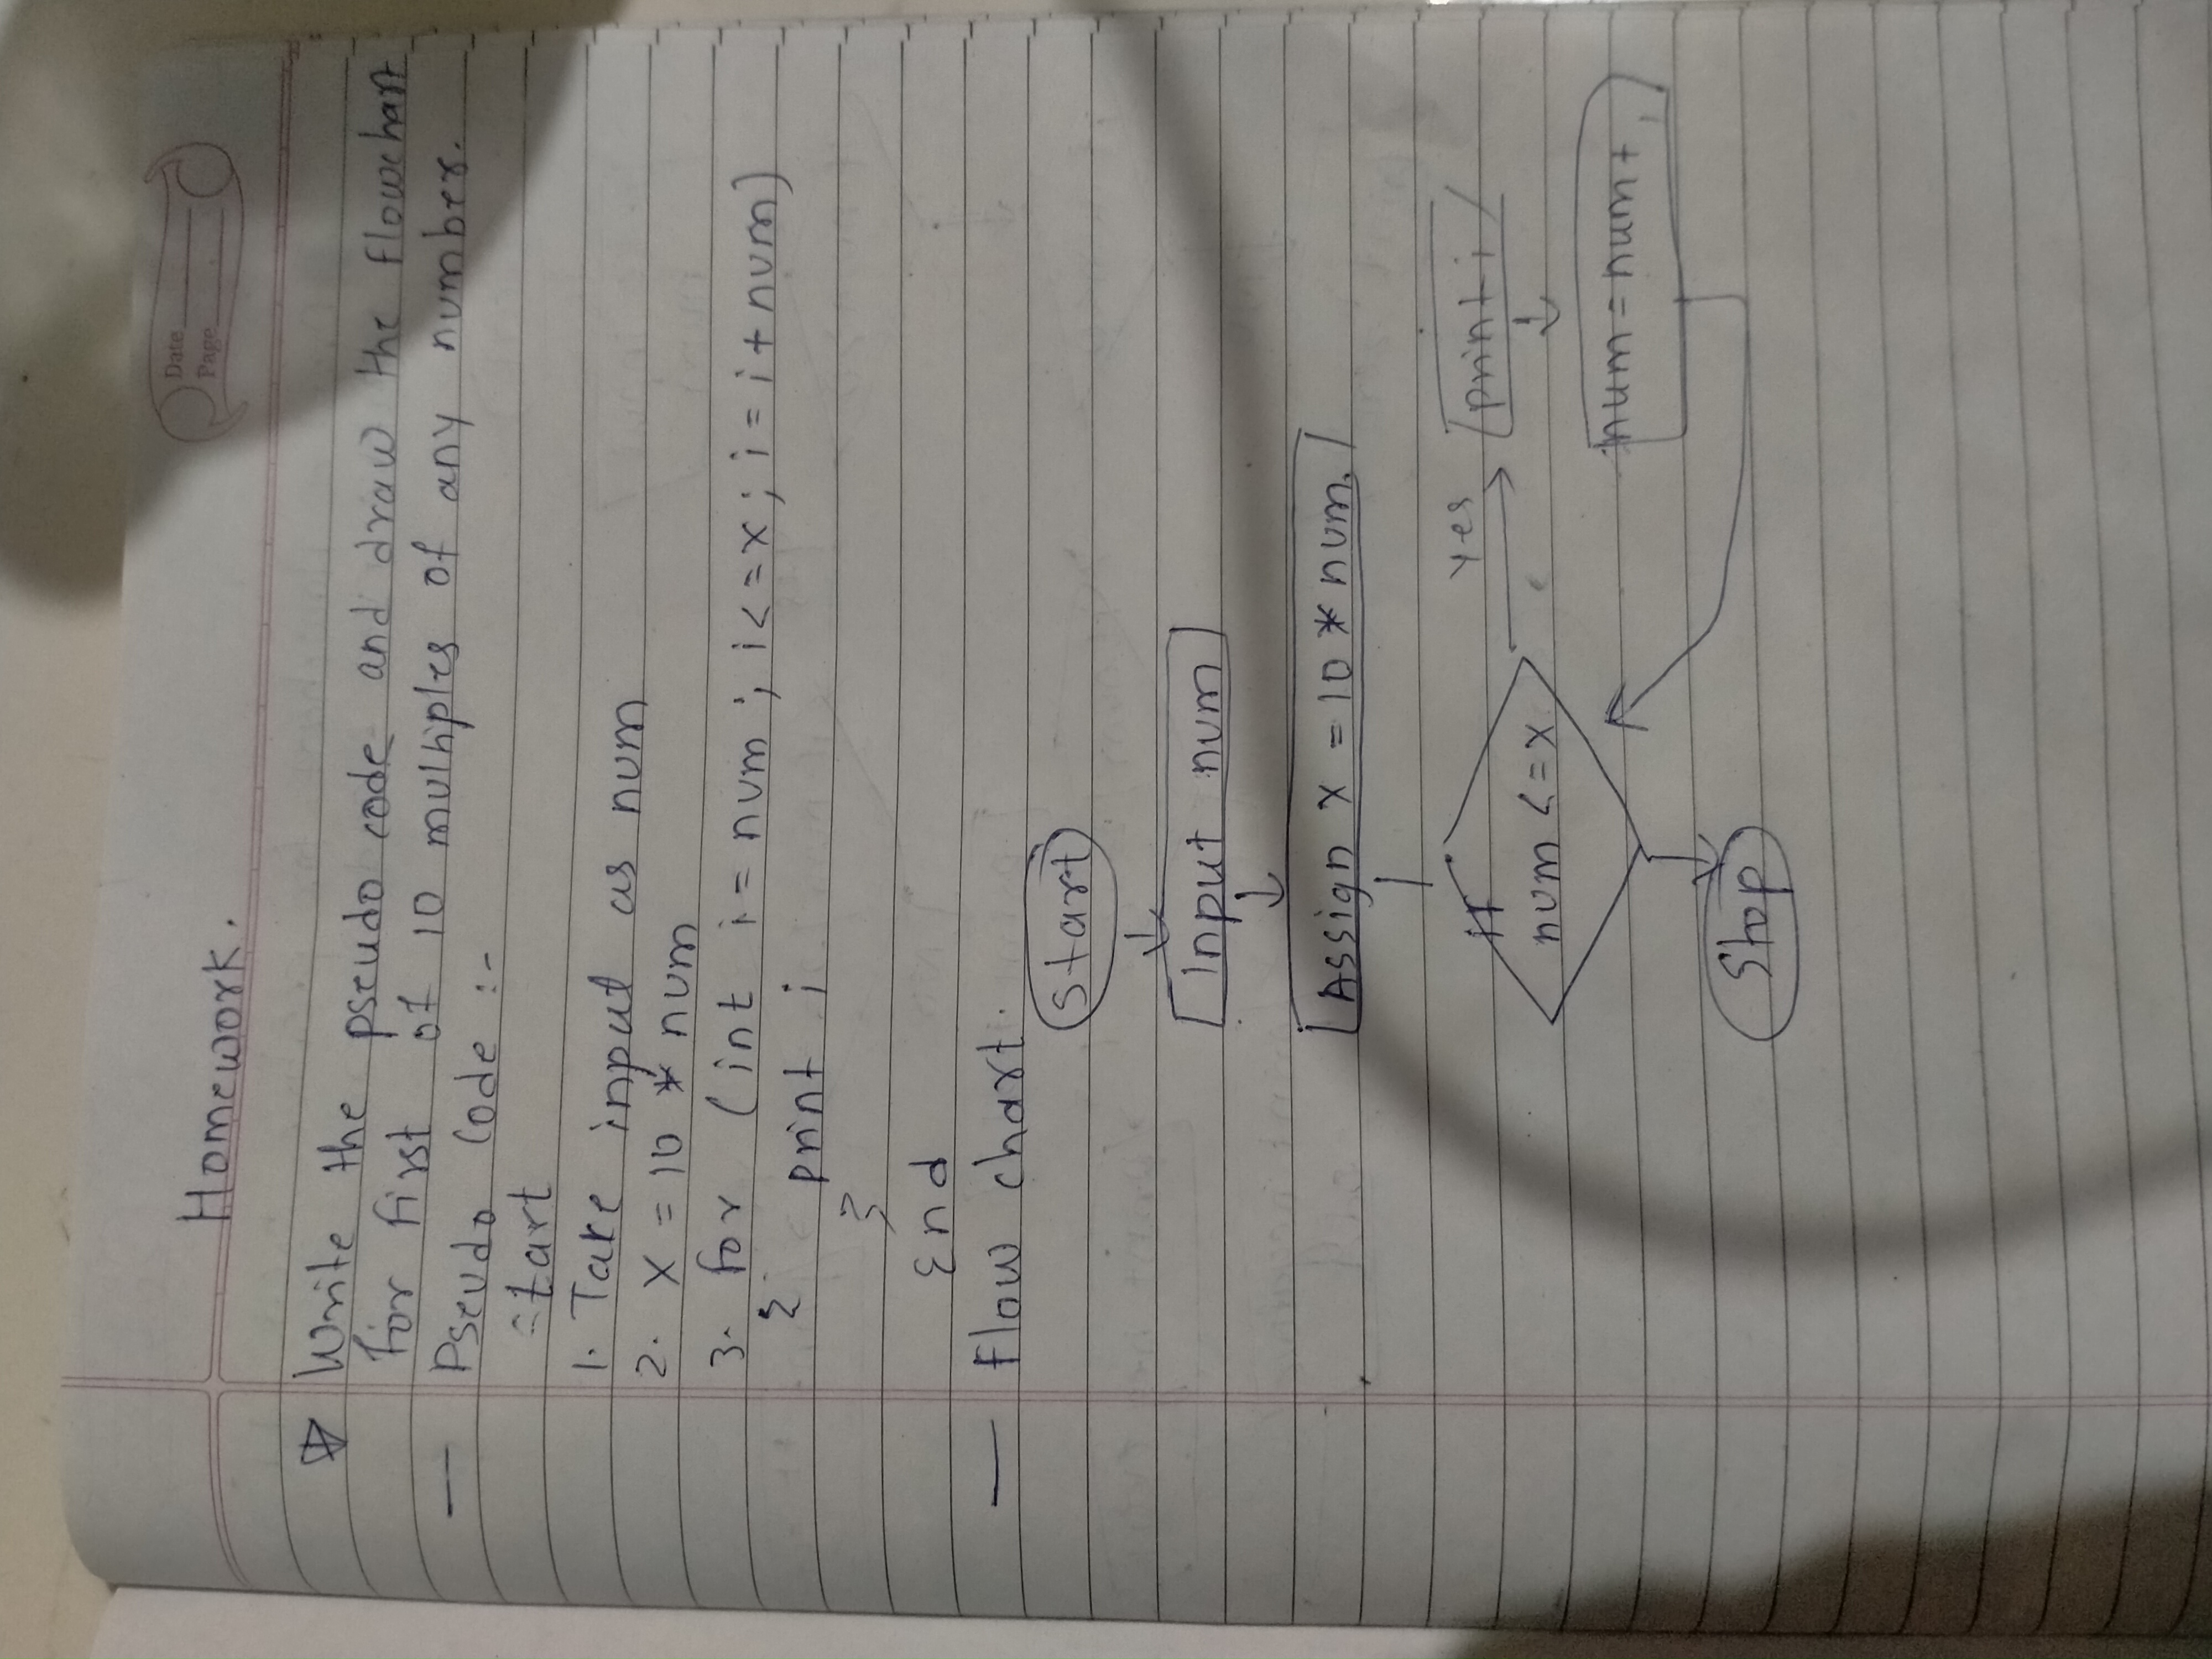 Date
Page
Homework.
Write the pseudo code and draw the flowchart
for first of 10 multiples of any number.
— Pseudo Code :-
Start
1. Take input as num
2. X = 10 * num
3. for (int i = num ; i <= x ; i = i + num)
{ print i
}
End
— Flow chart.
Start
Input num
Assign X = 10 * num.
if
num <= x
yes
print i
num = num +
Stop